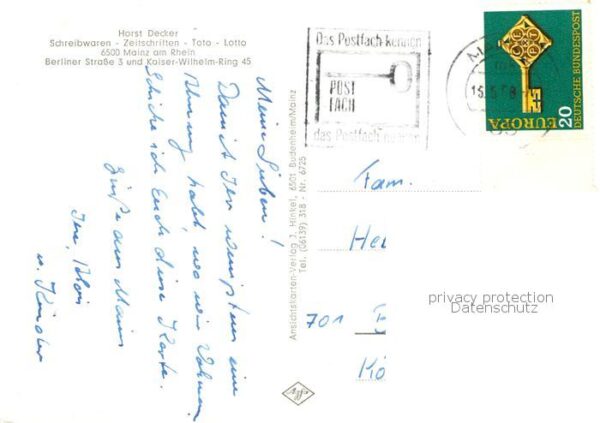 Horst Decker
Schreibwaren - Zeitschriften - Toto - Lotto
6500 Mainz am Rhein
Berliner Straße 3 und Kaiser-Wilhelm-Ring 45
Meine Lieben!
Damit Ihr wenigstens eine
Ahnung habt, wo wir wohnen,
schicke ich Euch diese Karte.
Grüße aus Mainz
u. Kinder
Ansichtskarten-Verlag J. Hinkel, 6501 Budenheim/Mainz
Tel. (06139) 318 - Nr. 6725
Das Postfach kennen
POST
FACH
das Postfach
DEUTSCHE BUNDESPOST
EUROPA
20
CEPT
Fam.
Hei
701
Kö
privacy protection
Datenschutz
Agfa